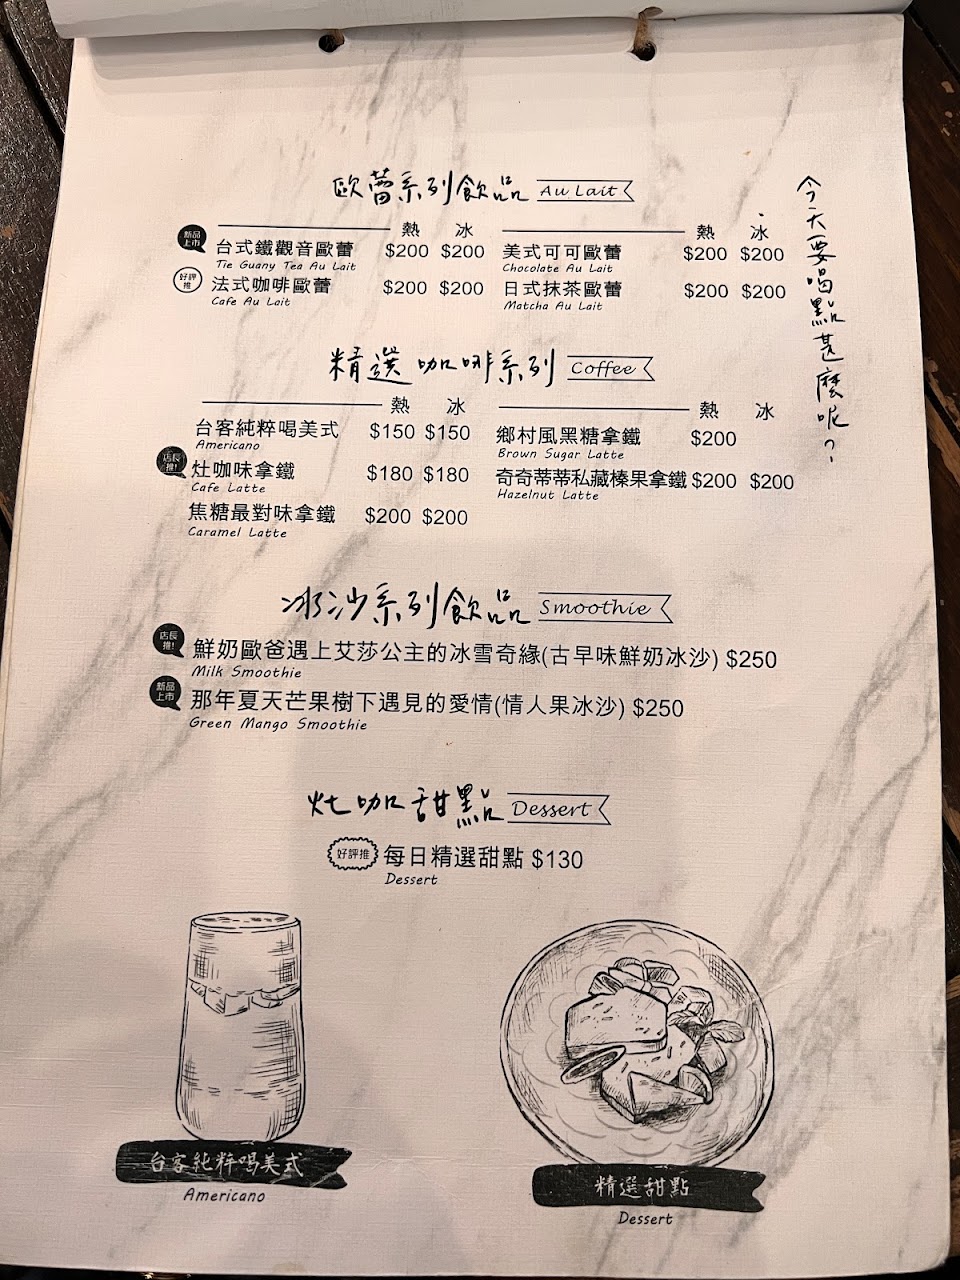 歐蕾系列飲品 Au Lait
今天要喝點甚麼呢?
熱 冰
新品上市 台式鐵觀音歐蕾 $200 $200
Tie Guany Tea Au Lait
好評推 法式咖啡歐蕾 $200 $200
Cafe Au Lait
熱 冰
美式可可歐蕾 $200 $200
Chocolate Au Lait
日式抹茶歐蕾 $200 $200
Matcha Au Lait
精選咖啡系列 Coffee
熱 冰
台客純粹喝美式 $150 $150
Americano
店長推! 灶咖味拿鐵 $180 $180
Cafe Latte
焦糖最對味拿鐵 $200 $200
Caramel Latte
熱 冰
鄉村風黑糖拿鐵 $200
Brown Sugar Latte
奇奇蒂蒂私藏榛果拿鐵 $200 $200
Hazelnut Latte
冰沙系列飲品 Smoothie
店長推! 鮮奶歐爸遇上艾莎公主的冰雪奇緣(古早味鮮奶冰沙) $250
Milk Smoothie
新品上市 那年夏天芒果樹下遇見的愛情(情人果冰沙) $250
Green Mango Smoothie
灶咖甜點 Dessert
好評推 每日精選甜點 $130
Dessert
台客純粹喝美式
Americano
精選甜點
Dessert